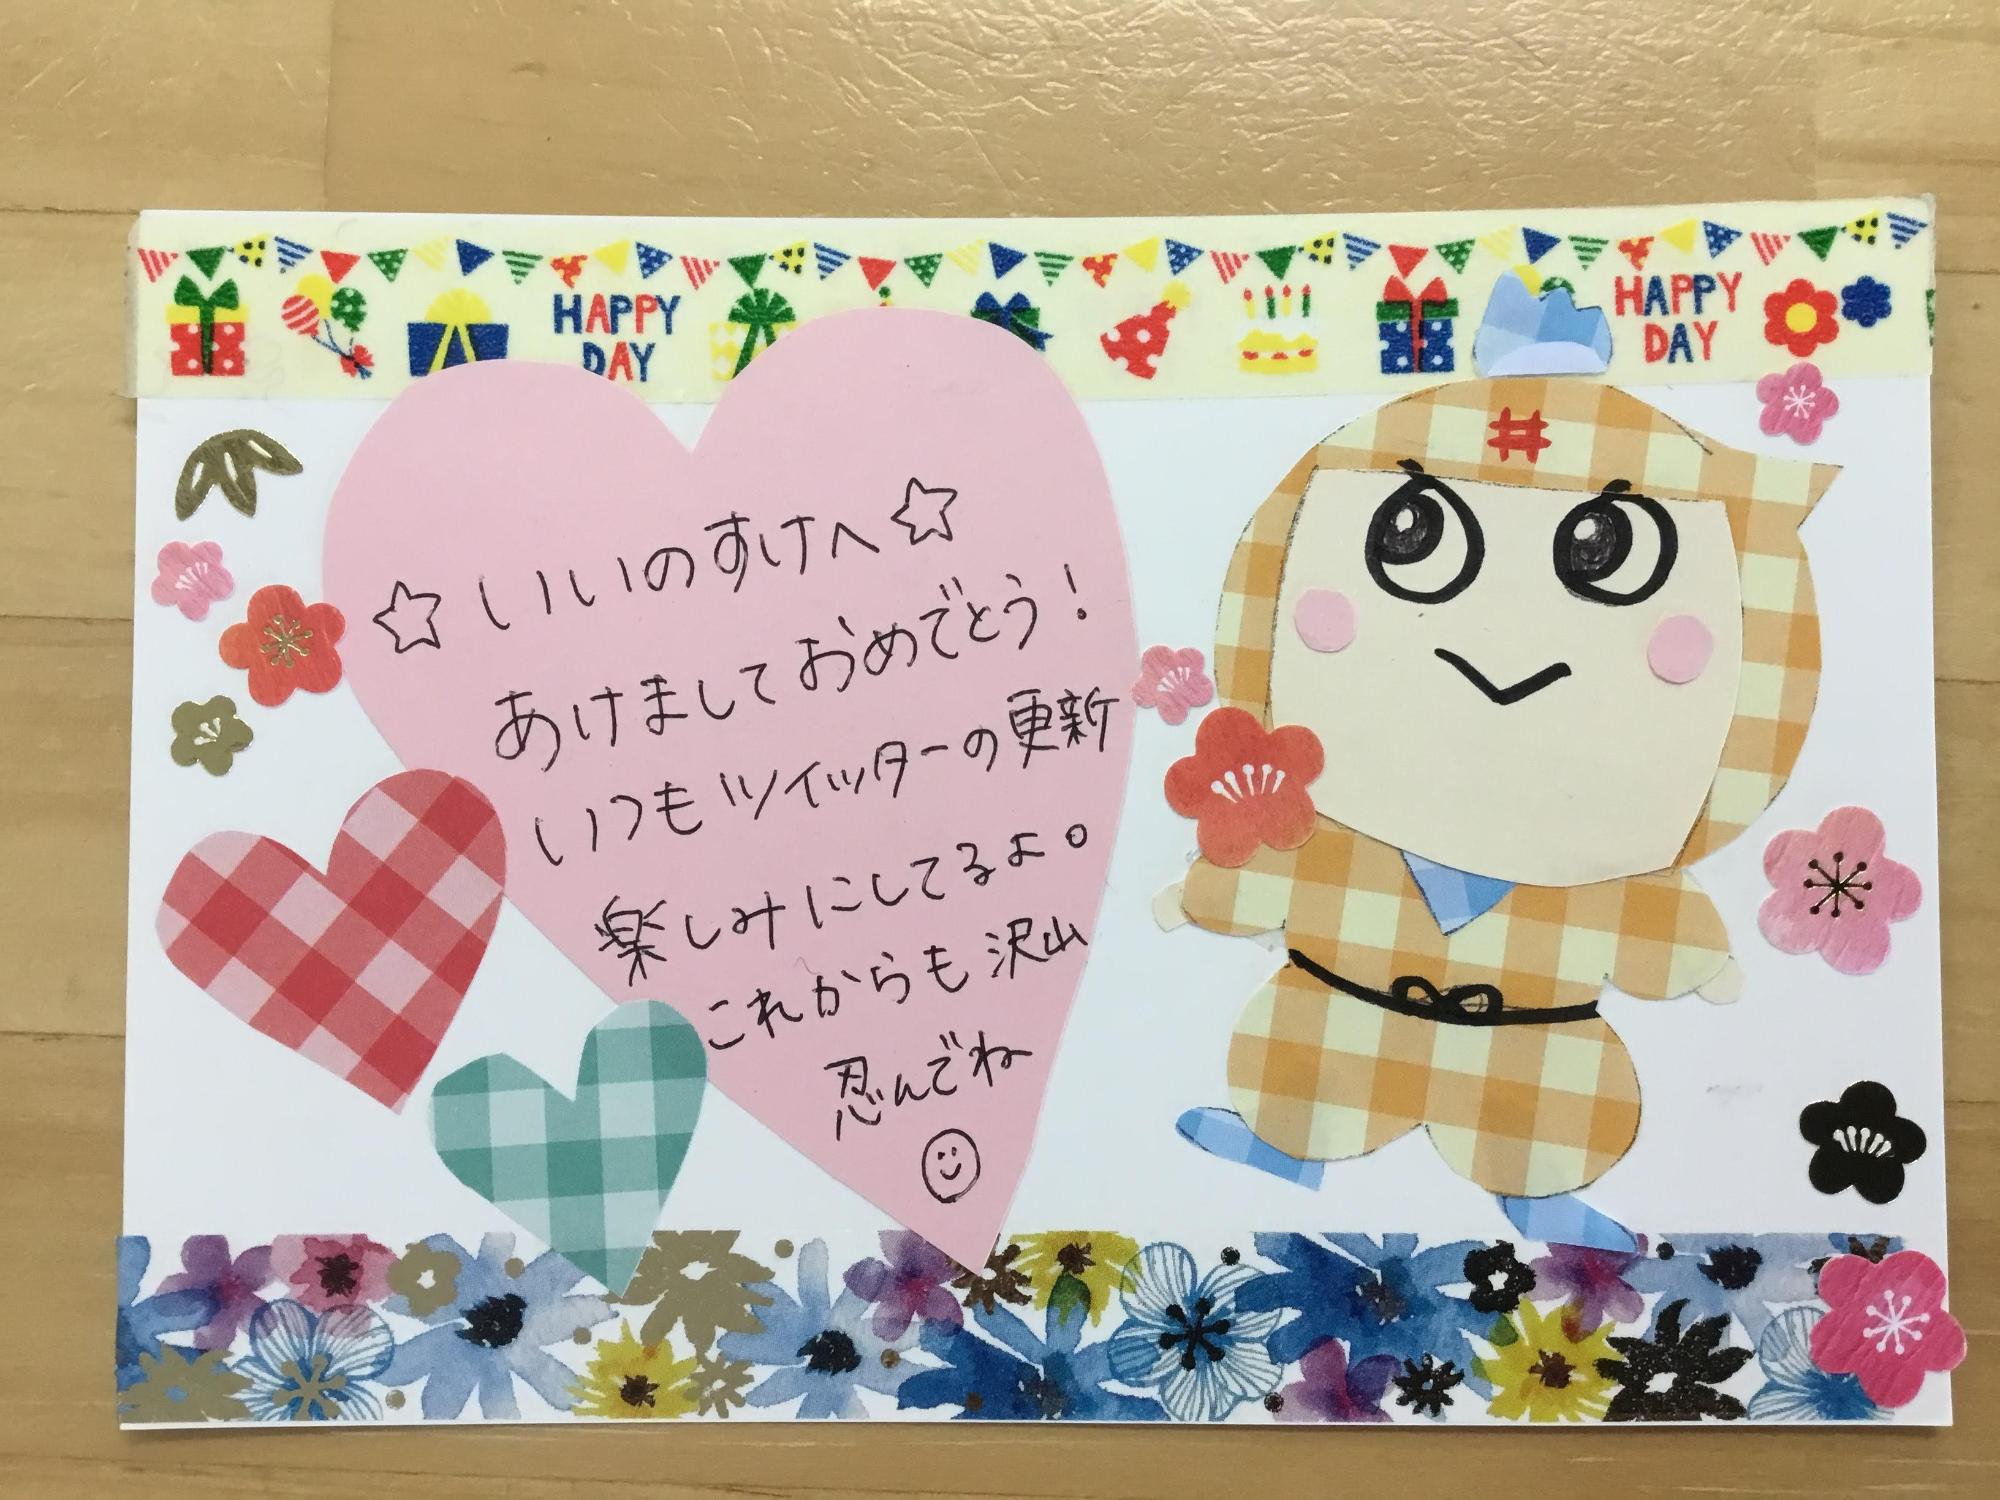 HAPPY DAY
HAPPY DAY
☆いいのすけへ☆
あけましておめでとう!
いつもツイッターの更新
楽しみにしてるよ。
これからも沢山
忍んでね
井